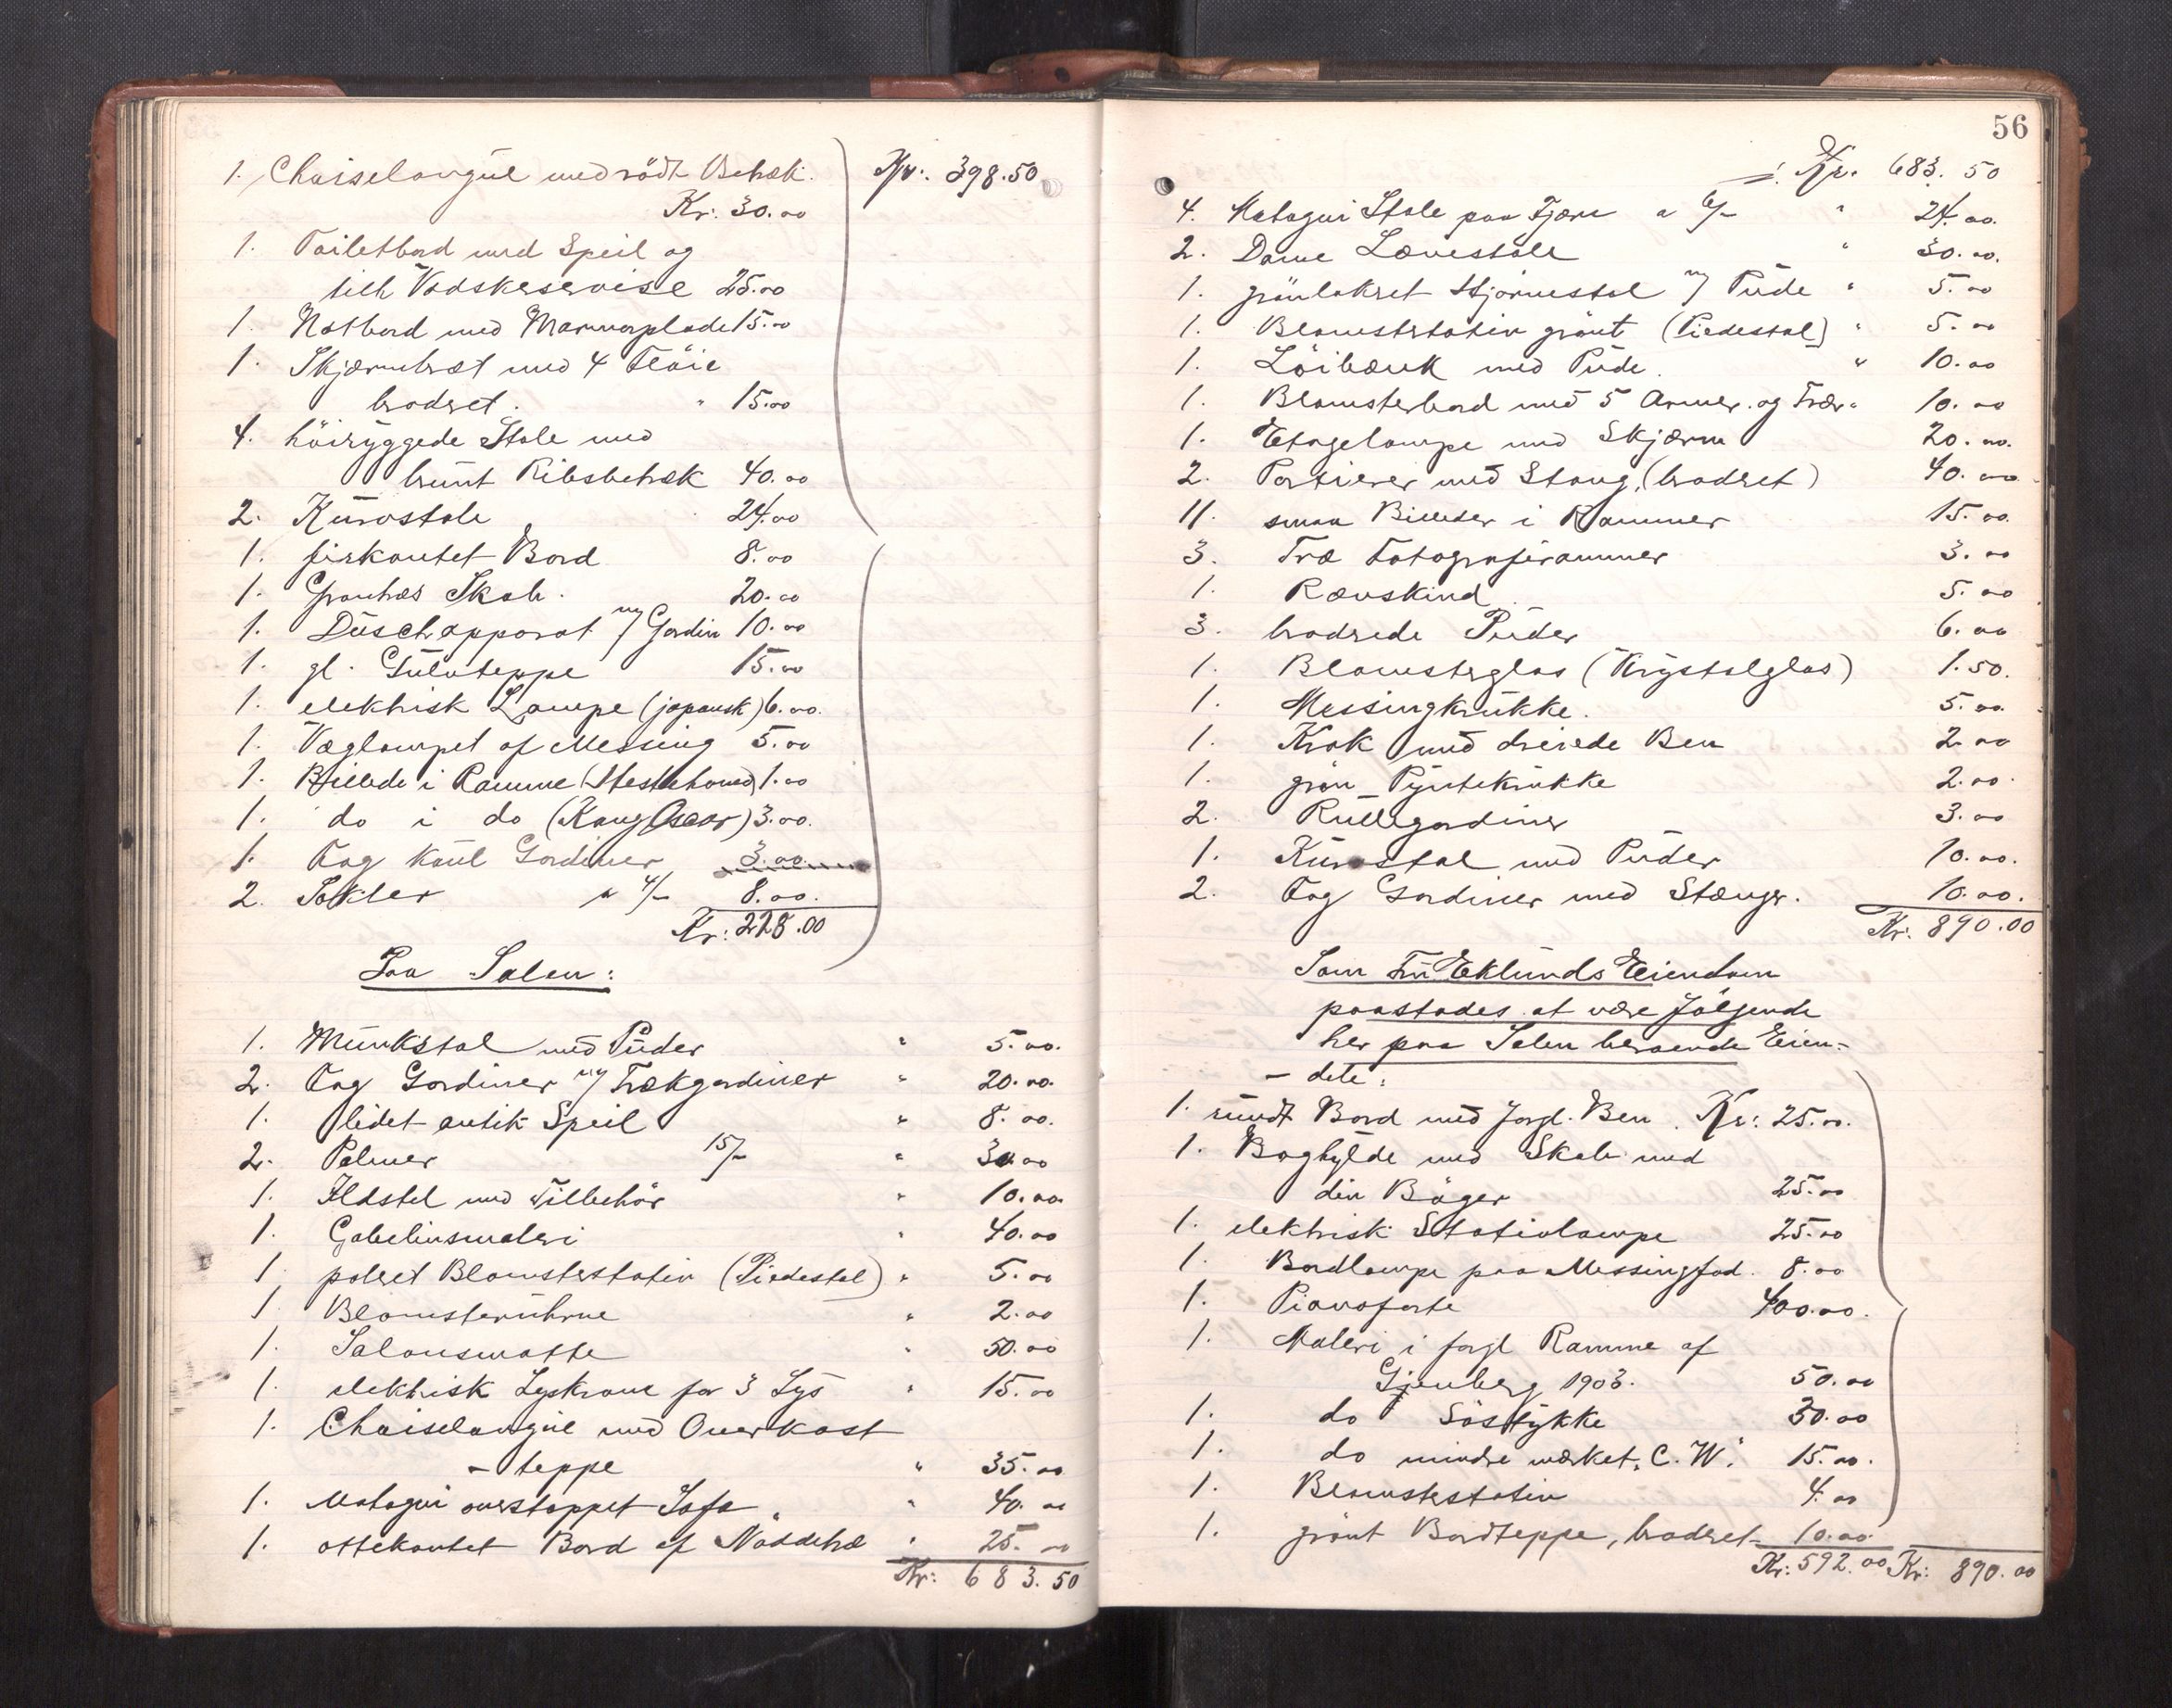 1. Chaiselongue med rödt Betræk. Kr: 398.50
Kr: 30.00
1. Toiletbord med Speil og
tilh Vadskeservise 25.00
1. Natbord med Marmorplade 15.00
1. Skjærmbræt med 4 Flöie
brodret. " 15.00
4. höiryggede Stole med
brunt Ribsbetræk 40.00
2. Kurvstole 24.00
1. firkantet Bord 8.00
1. Grantræs Skab. 20.00
1. Duschapparat m/ Gardin 10.00
1. gl. Gulvteppe 15.00
1. elektrisk Lampe (japansk) 6.00.
1. Væglampet af Messing 5.00
1. Billede i Ramme (Hestehoved) 1.00
1. do i do (Kong Oscar) 3.00.
1. Fag Gardiner 3.00
2. Sokler a 4/- 8.00.
Kr: 228.00
Paa Salen:
1. Munkstol med Puder " 5.00.
2. Fag Gardiner m/ Trækgardiner " 20.00.
1. lidet antik Speil " 8.00.
2. Palmer 15/- " 30.00
1. Ildstel med Tilbehör " 10.00.
1. Gobelinsmaleri " 40.00
1. poleret Blomsterstativ (Piedestal) " 5.00
1. Blomsterurne " 2.00
1. Salonsmatte " 50.00
1. elektrisk Lyskrone for 3 Lys " 15.00
1. Chaiselongue med Overkast
- teppe " 35.00
1. Mahogni overstoppet Sofa " 40.00
1. ottekantet Bord af Nöddetræ " 25.00
Kr: 683.50
56
Kr. 683.50
4. Mahogni Stole paa Fjære a 6/- " 24.00.
2. Dame Lænestole " 30.00.
1. grönlakret Hjörnestol m/ Pude " 5.00
1. Blomsterstativ grönt (Piedestal) " 5.00
1. Löibænk med Pude. " 10.00
1. Blomsterbord med 5 Armer og Trær " 10.00
1. Etagelampe med Skjærm 20.00.
2. Portierer med Stang, (brodret) 40.00
11. smaa Billeder i Rammer 15.00.
3. Træ Fotografirammer 3.00
1. Rævskind 5.00
3. broderede Puder 6.00
1. Blomsterglas (Krystalglas) 1.50.
1. Messingkrukke. 5.00.
1. Krak med dreiede Ben 2.00
1. grön Pyntekrukke 2.00.
2. Rullegardiner 3.00
1. Kurvstol med Puder 10.00.
2. Fag Gardiner med Stænger. 10.00.
Kr. 890.00
Som Fru Eklunds Eiendom
paastades at være fölgende
her paa Salen beroende Eien-
- dele:
1. rundt Bord med forgl. Ben. Kr: 25.00.
1. Boghylde med Skab med
div Böger 25.00
1. elektrisk Stativlampe 25.00
1. Bordlampe paa Messingfod. 8.00
1. Pianoforte 400.00.
1. Maleri i forgl Ramme af
Gjenberg 1903. 50.00
1. do Söstykke 30.00
1. do mindre mærket "C. W." 15.00.
1. Blomsterstativ 4.00
1. grönt Bordteppe, brodret 10.00
Kr: 592.00 Kr: 890.00